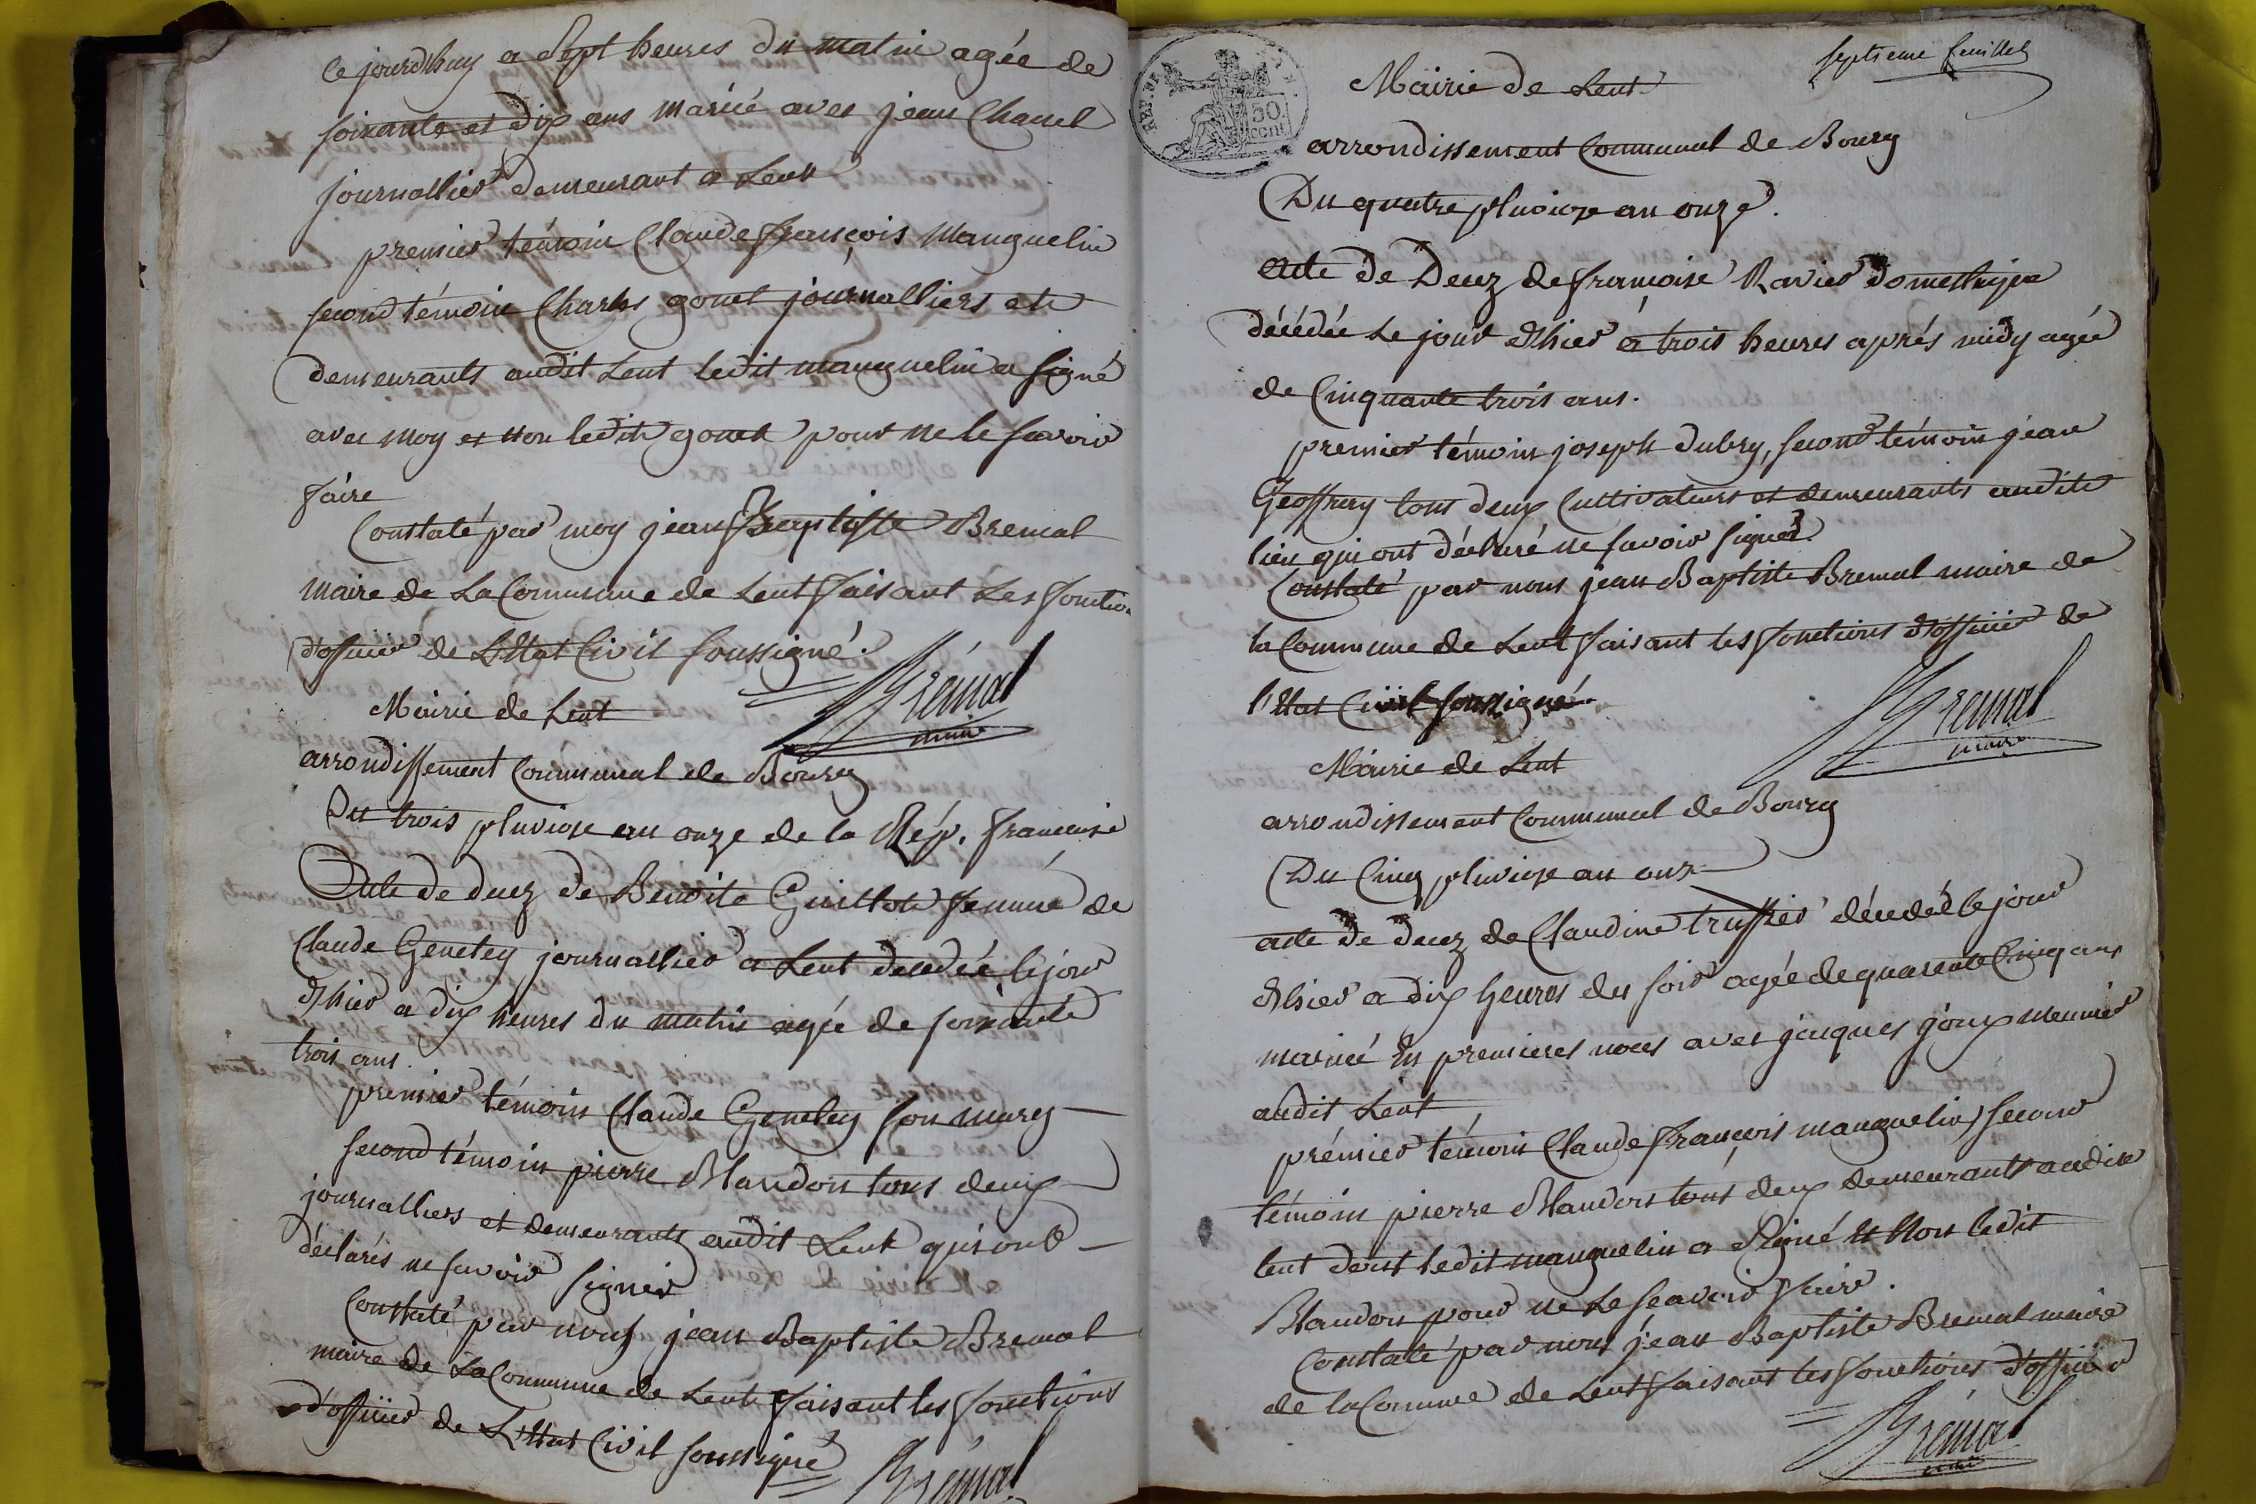 ce jourdhuy a sept heures du matin agée de
soixante et dix ans mariée avec jean Chanel
journallier demeurant a Lent
premier témoin Claude François Manguelin
second témoin Charles gonet journalliers et
demeurants audit Lent ledit manguelin a signé
avec moy et non ledit gonet pour ne le savoir
faire
Constaté par moy jean Baptiste Bremal
maire de La Commune de Lent faisant Les fonction
d'officier de L'Etat Civil soussigné.
Brémal
maire
Mairie de Lent
arrondissement Communal de Bourg
Du trois pluviose an onze de la Rép. francaise
Acte de decez de Benoite Guillot femme de
Claude Genetey journallier a Lent decedée le jour
d'hier a dix heures du matin agée de soixante
trois ans.
premier témoin Claude Genetey son mary
second témoin pierre Blandon tous deux
journalliers et demeurants audit Lent qui ont
déclarés ne savoir signer
Constaté par nous jean Baptiste Bremal
maire de La Commune de Lent faisant les fonctions
d'officier de L'Etat Civil soussigné
Brémal
septieme feuillet
REP. FR
50
cent
Mairie de Lent
arrondissement Communal de Bourg
Du quatre pluviose an onze.
Acte de Decez de françoise Ravier domestique
décédée Le jour d'hier a trois heures aprés midy agée
de Cinquante trois ans.
premier témoin joseph dubry, second témoin jean
Geoffrey tous deux Cultivateurs et demeurants audit
lieu qui ont déclaré ne savoir signer
Constaté par nous jean Baptiste Bremal maire de
la Commune de Lent faisant les fonctions d'officier de
l'Etat Civil soussigné
Bremal
maire
Mairie de Lent
arrondissement Communal de Bourg
Du Cinq pluviose an onze
acte de decez de Claudine truffier décedée le jour
d'hier a dix heures du soir agée de quarente Cinq ans
mariée En premieres noces avec jacques joux meunier
audit Lent
prémier témoin Claude François manguelin second
témoin pierre Blandon tous deux demeurants audit
lent dont ledit manguelin a Signé Et Non ledit
Blandon pour ne Le sçavoir faire.
Constaté par nous jean Baptiste Bremal maire
de la Commune de Lent faisant les fonctions d'officier
Brémal
maire